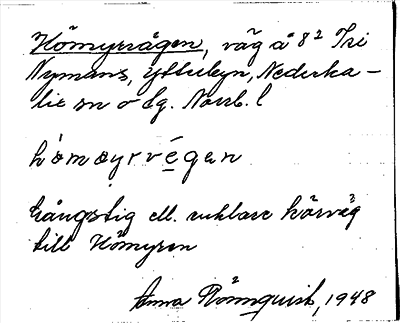 Hömyrvägen, väg å 8² Tri
Nymans, Ytterbyn, Nederka-
lix sn o lg. Norrb. l
hömoyrvégan
Gångstig ell. enklare körväg
till Hömyren
Anna Rönnquist, 1948